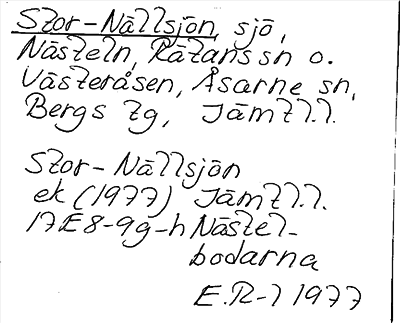 Stor-Nällsjön, sjö,
Nästeln, Rätans sn o.
Västeråsen, Åsarne sn,
Bergs tg, Jämtl.l.
Stor-Nällsjön
ek (1977) Jämtl.l.
17E8-9g-h Nästel-
bodarna
E.R-l 1977